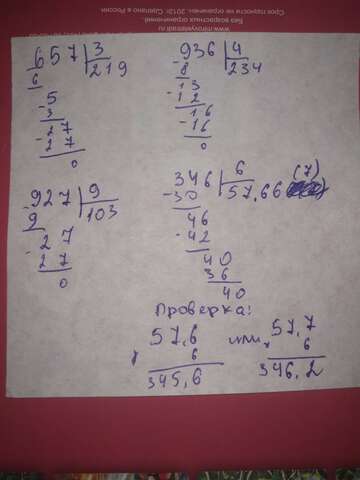 Срок годности не ограничен. 2012г. Сделано в России.
Без возрастных ограничений.
657 | 3
6 219
-5
3
-27
27
0
936 | 4
-8 234
13
-12
16
-16
0
-927 | 9
9 103
-27
27
0
346 | 6 (7)
-30 57,66
46
-42
40
36
40
Проверка:
57,6 или 57,7
× 6 × 6
345,6 346,2